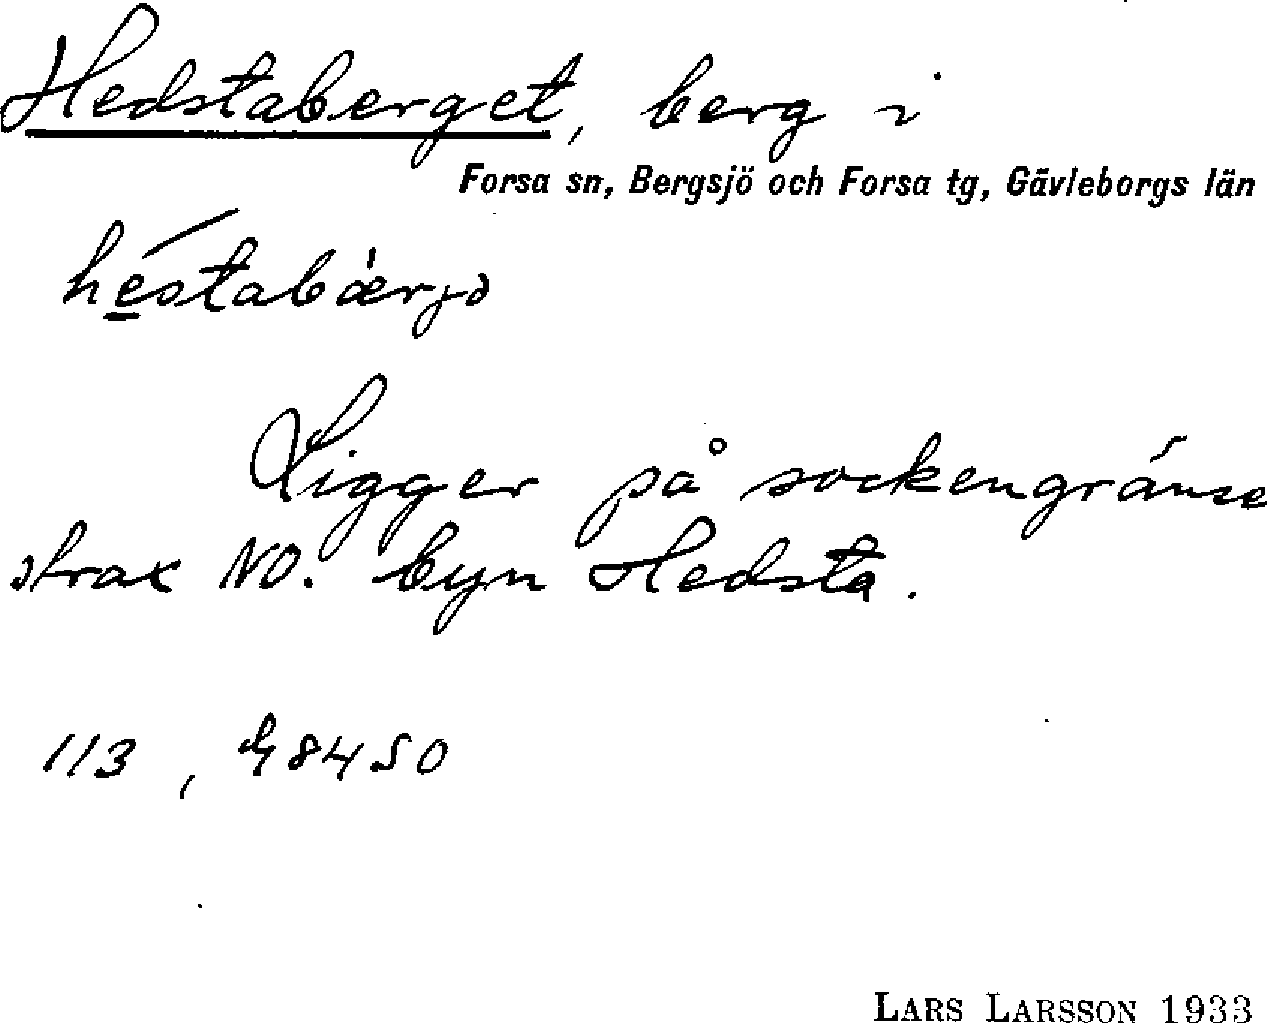 Hedstaberget, berg i
Forsa sn, Bergsjö och Forsa tg, Gävleborgs län
héstabàrjə
Ligger på sockengränse
strax NO. byn Hedsta.
113, G8450
LARS LARSSON 1933